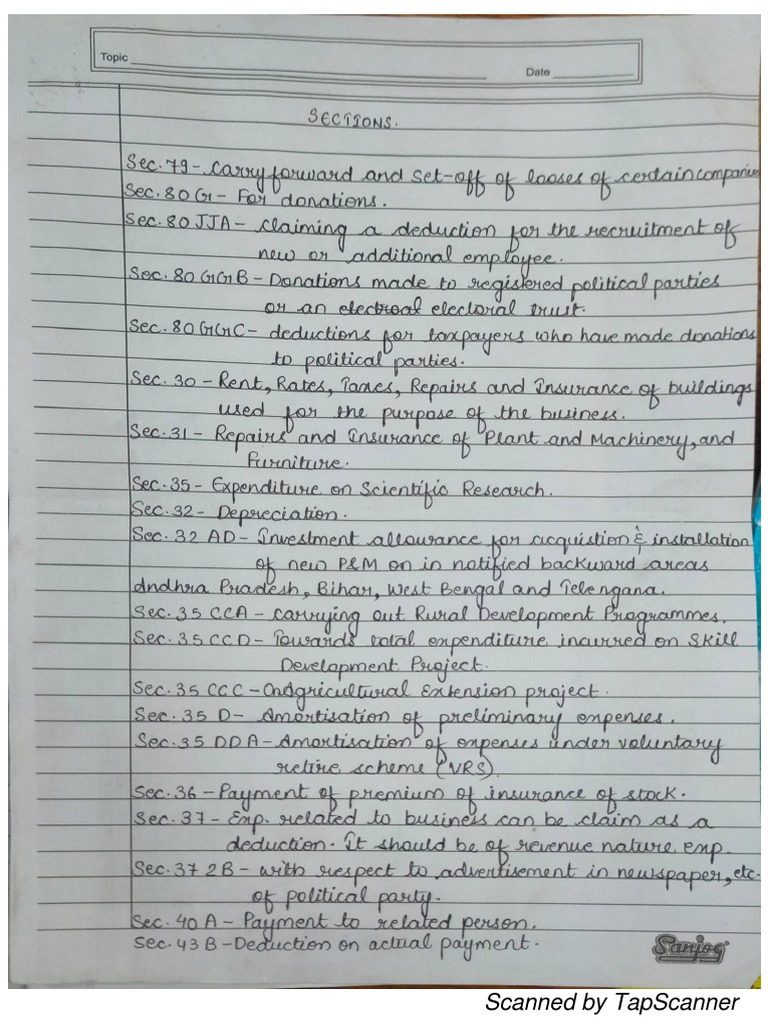 Topic
Date
SECTIONS.
Sec. 79 - Carry forward and set-off of looses of certain companies
Sec. 80 G - For donations.
Sec. 80 JJA - Claiming a deduction for the recruitment of
new or additional employee.
Sec. 80 GGB - Donations made to registered political parties
or an electroal electoral trust.
Sec. 80 GGC - deductions for taxpayers who have made donations
to political parties.
Sec. 30 - Rent, Rates, Taxes, Repairs and Insurance of buildings
used for the purpose of the business.
Sec. 31 - Repairs and Insurance of Plant and Machinery, and
Furniture.
Sec. 35 - Expenditure on Scientific Research.
Sec. 32 - Depreciation.
Sec. 32 AD - Investment allowance for acquistion & installation
of new P&M on in notified backward areas
Andhra Pradesh, Bihar, West Bengal and Telengana.
Sec. 35 CCA - Carrying out Rural Development Programmes.
Sec. 35 CCD - Towards total expenditure incurred on Skill
Development Project.
Sec. 35 CCC - On Agricultural Extension project.
Sec. 35 D - Amortisation of preliminary expenses.
Sec. 35 DDA - Amortisation of expenses under voluntary
retire scheme (VRS).
Sec. 36 - Payment of premium of insurance of stock.
Sec. 37 - Exp. related to business can be claim as a
deduction. It should be of revenue nature exp.
Sec. 37 2B - with respect to advertisement in newspaper, etc.
of political party.
Sec. 40 A - Payment to related person.
Sec. 43 B - Deduction on actual payment.
Sanjog
Scanned by TapScanner